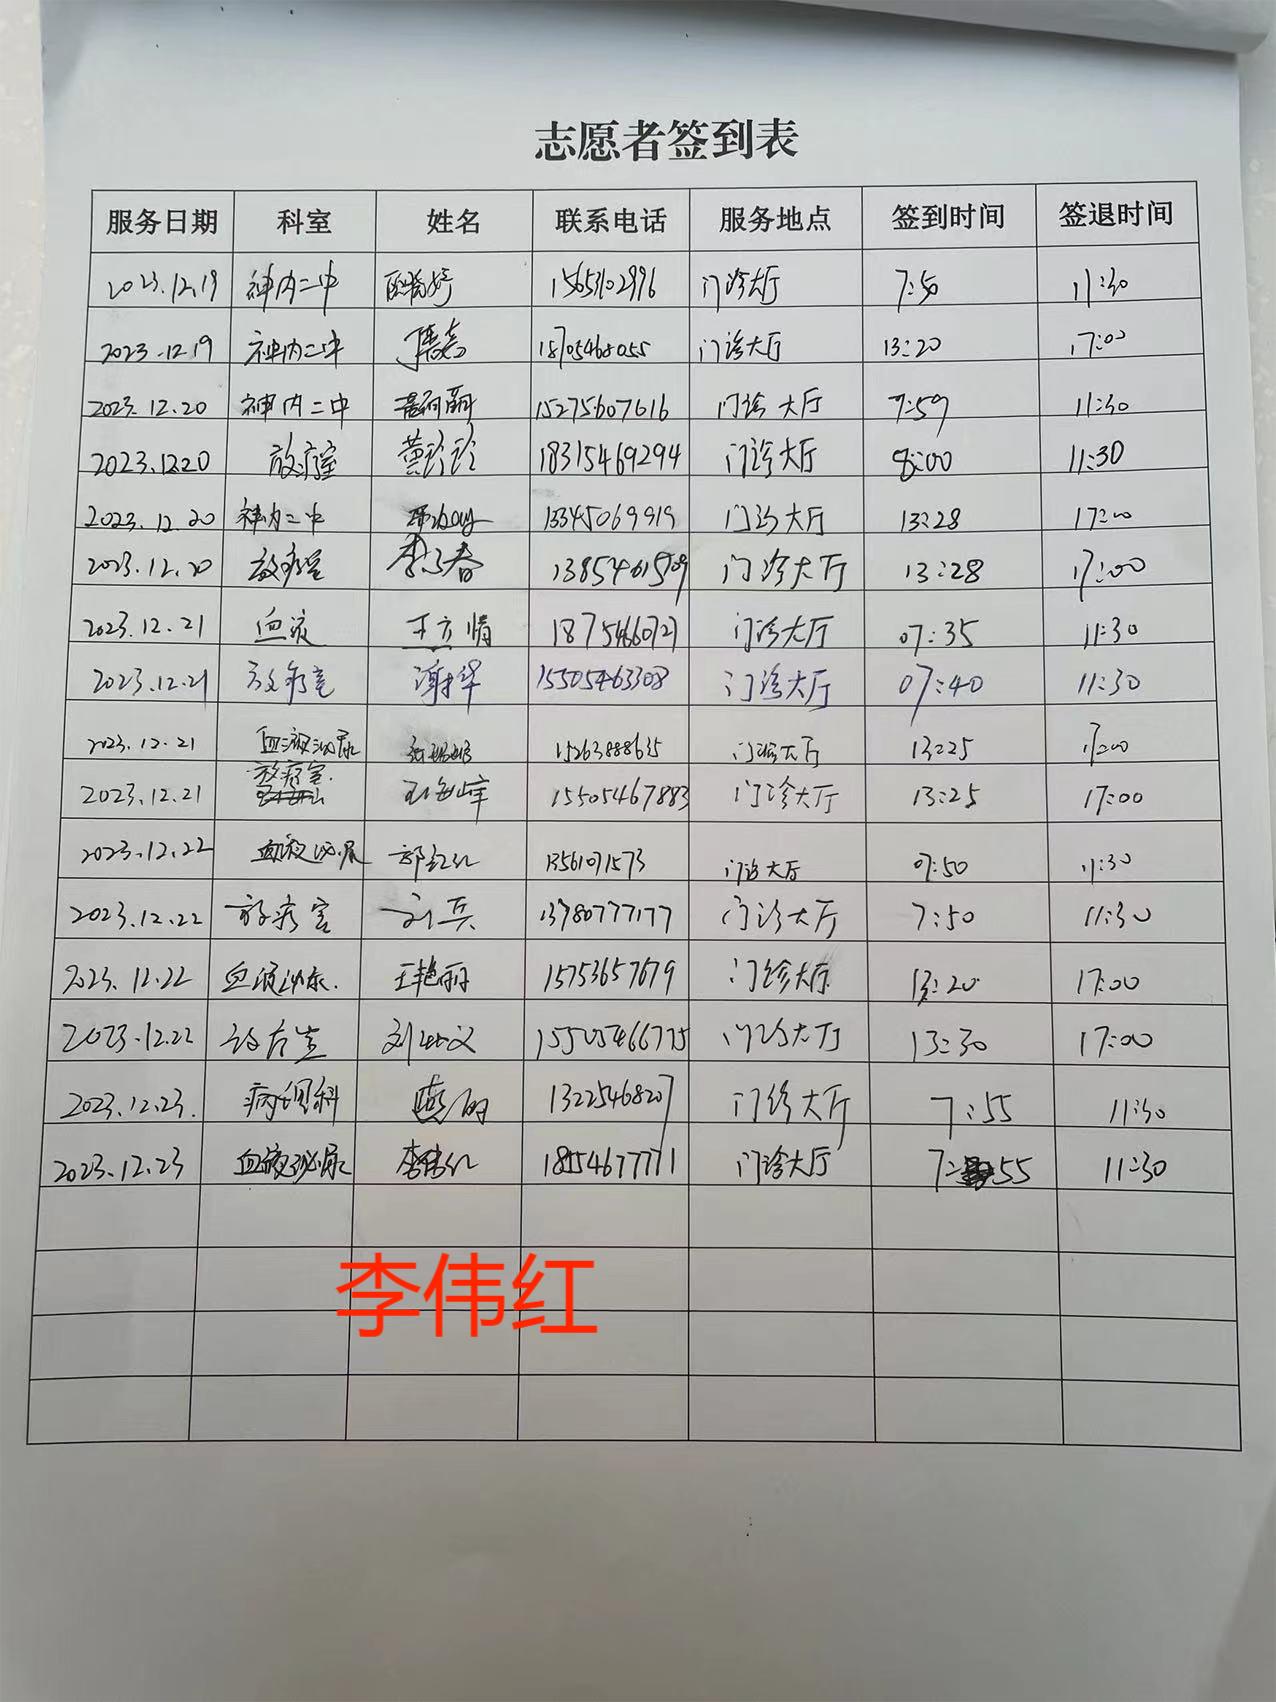 志愿者签到表
服务日期 科室 姓名 联系电话 服务地点 签到时间 签退时间
2023.12.19 神内二中 门诊大厅 7:50 11:30
2023.12.19 神内二中 18705468055 门诊大厅 13:20 17:00
2023.12.20 神内二中 15275607616 门诊大厅 7:59 11:30
2023.12.20 放疗室 黄珍珍 18315469294 门诊大厅 8:00 11:30
2023.12.20 神内二中 13345069919 门诊大厅 13:28 17:00
2023.12.20 放疗室 李子春 门诊大厅 13:28 17:00
2023.12.21 血液 王立情 18754660727 门诊大厅 07:35 11:30
2023.12.21 放疗室 15505463308 门诊大厅 07:40 11:30
2023.12.21 血液泌尿 15263888635 门诊大厅 13:25 17:00
2023.12.21 放疗室 王海峰 15505467883 门诊大厅 13:25 17:00
2023.12.22 血液泌尿 郭红红 13561071573 门诊大厅 07:50 11:30
2023.12.22 放疗室 刘兵 13780777177 门诊大厅 7:50 11:30
2023.12.22 血液泌尿 王艳丽 15753657679 门诊大厅 13:20 17:00
2023.12.22 15505466775 门诊大厅 13:30 17:00
2023.12.23 病理科 13225468207 门诊大厅 7:55 11:30
2023.12.23 血液泌尿 李伟红 18554677771 门诊大厅 7:55 11:30
李伟红